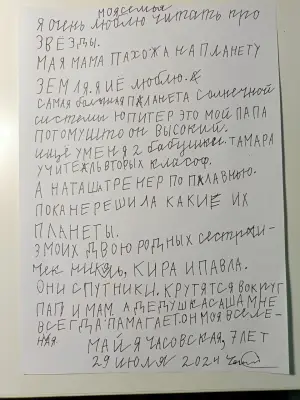 моя семья
Я очень люблю читать про
ЗВЁЗДЫ.
МАЯ МАМА ПАХОЖА НА ПЛАНЕТУ
ЗЕМЛЯ. Я ИЕ ЛЮБЛЮ.
САМАЯ большая ПЛАНЕТА СОЛНЕЧНОЙ
системы ЮПИТЕР ЭТО МОЙ ПАПА
ПОТОМУШТО ОН ВЫСОКИЙ.
ИЩЁ УМЕНЯ 2 бабушки. ТАМАРА
УЧИТЕЛЬ ВТОРЫХ класоф.
А НАТАША ТРЕНЕР ПО ПЛАВНЮ.
ПОКА НЕРЕШИЛА КАКИЕ ИХ
ПЛАНЕТЫ.
3 МОИХ ДВОЮРОДНЫХ сестры-
чек КИРА И ПАВЛА.
ОНИ СПУТНИКИ. КРУТЯТСЯ ВОКРУГ
ПАП И МАМ. А ДЕДУШКА САША МНЕ
ВСЕГДА ПАМАГАЕТ. ОН МОЯ ВСЕЛЕ-
НАЯ.
МАЙЯ ЧАСОВСКАЯ, 7 ЛЕТ
29 ИЮЛЯ 2024